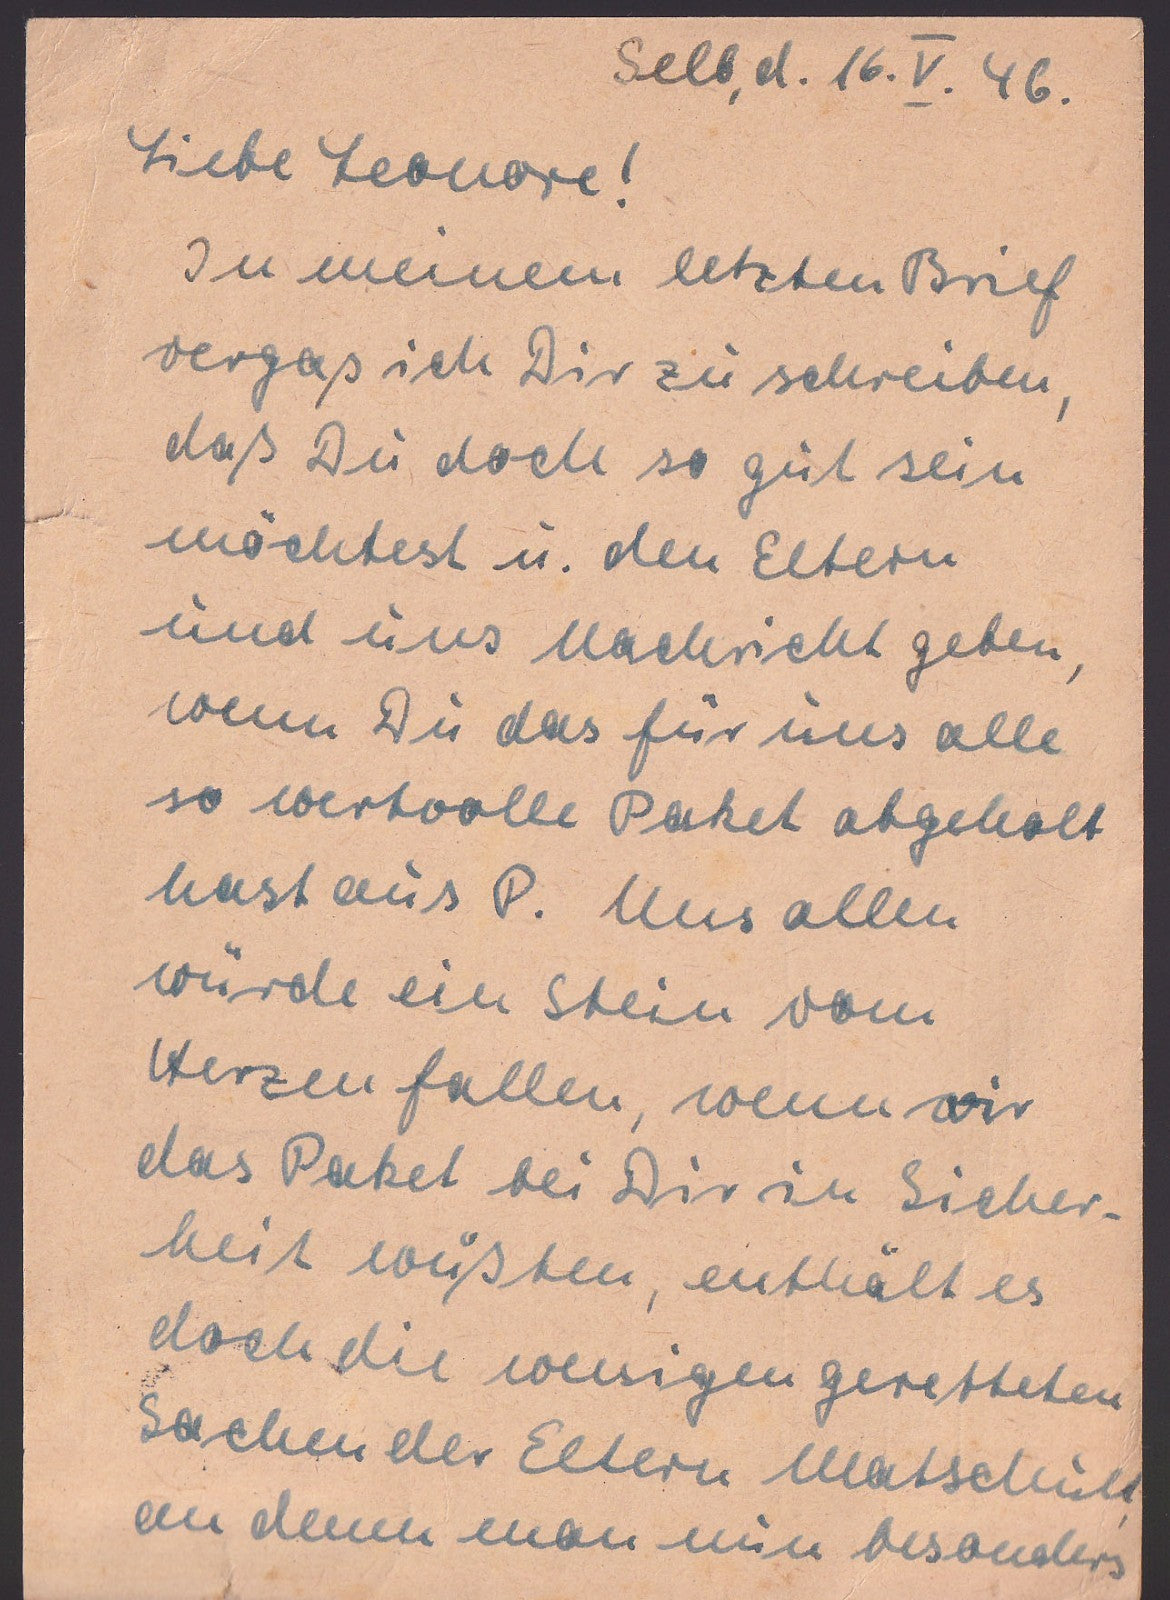 Selb, d. 16. V. 46.
Liebe Leonore!
In meinem letzten Brief
vergaß ich Dir zu schreiben,
daß Du doch so gut sein
möchtest u. den Eltern
und uns Nachricht geben,
wenn Du das für uns alle
so wertvolle Paket abgeholt
hast aus P. Uns allen
würde ein Stein vom
Herzen fallen, wenn wir
das Paket bei Dir in Sicher-
heit wüßten, enthält es
doch die wenigen geretteten
Sachen der Eltern
an denen man nun besonders